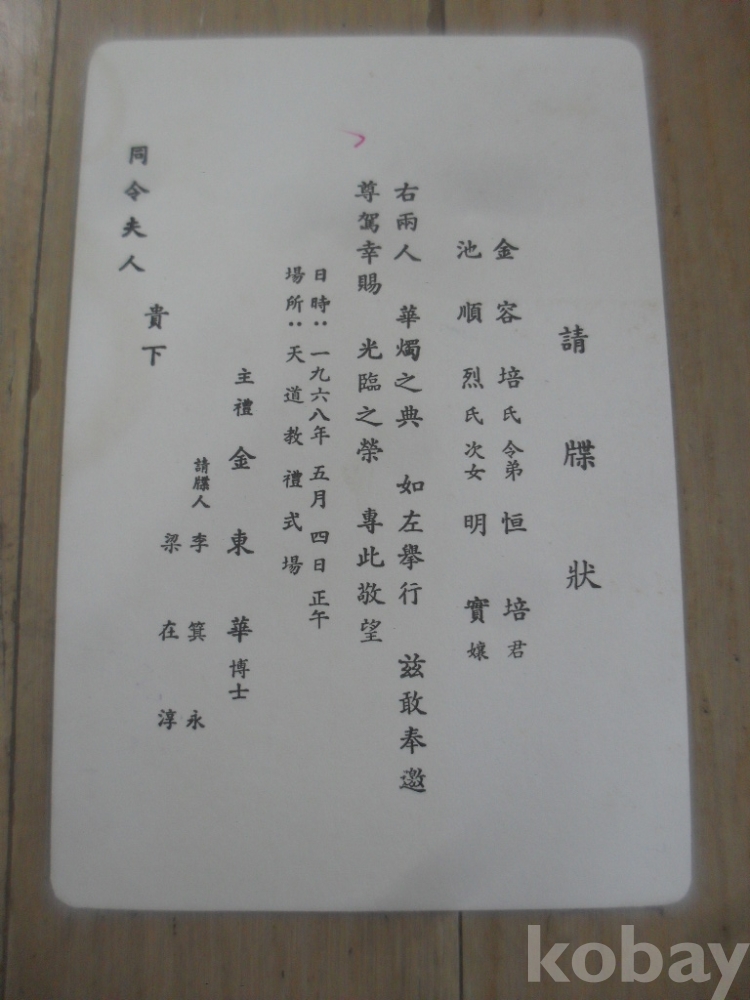 請牒狀
金容培氏令弟恒培君
池順烈氏次女明實孃
右兩人 華燭之典 如左擧行 玆敢奉邀
尊駕幸賜 光臨之榮 專此敬望
日時:一九六八年 五月 四日 正午
場所:天道敎禮式場
主禮 金東華博士
請牒人 李箕永
梁在淳
同令夫人 貴下
kobay